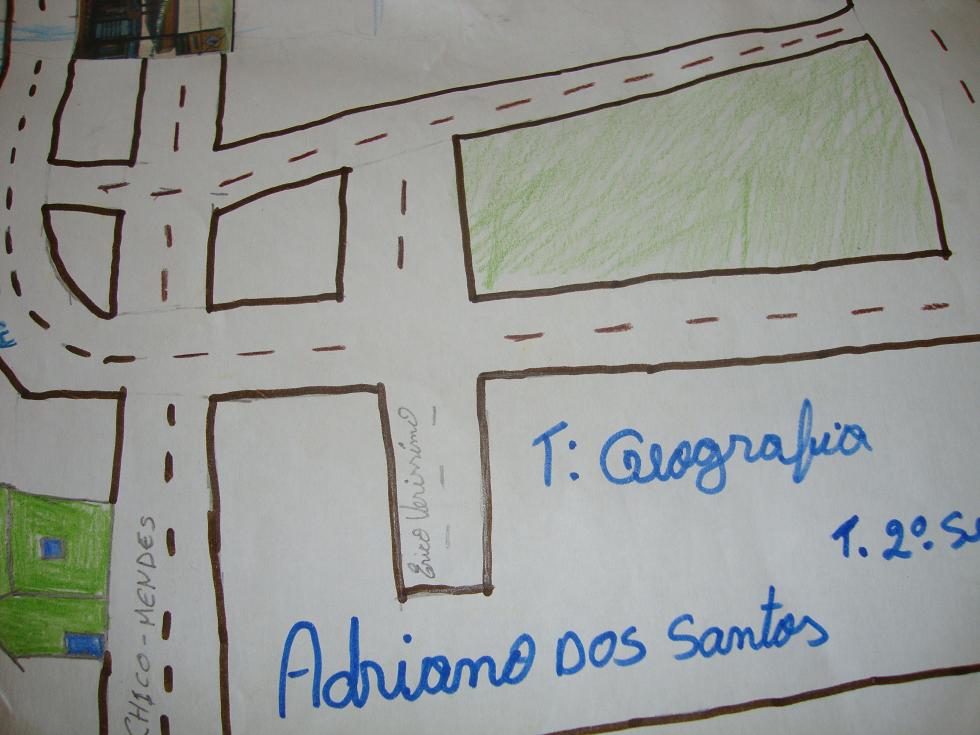 Erico Verissimo
T: Geografia
T. 2º.
CHICO-MENDES
Adriano DOS Santos